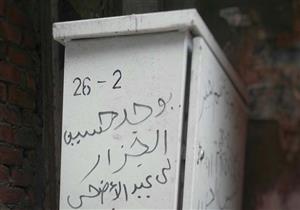 26-2
يوجد حسين
الجزار
في عيد الأضحى